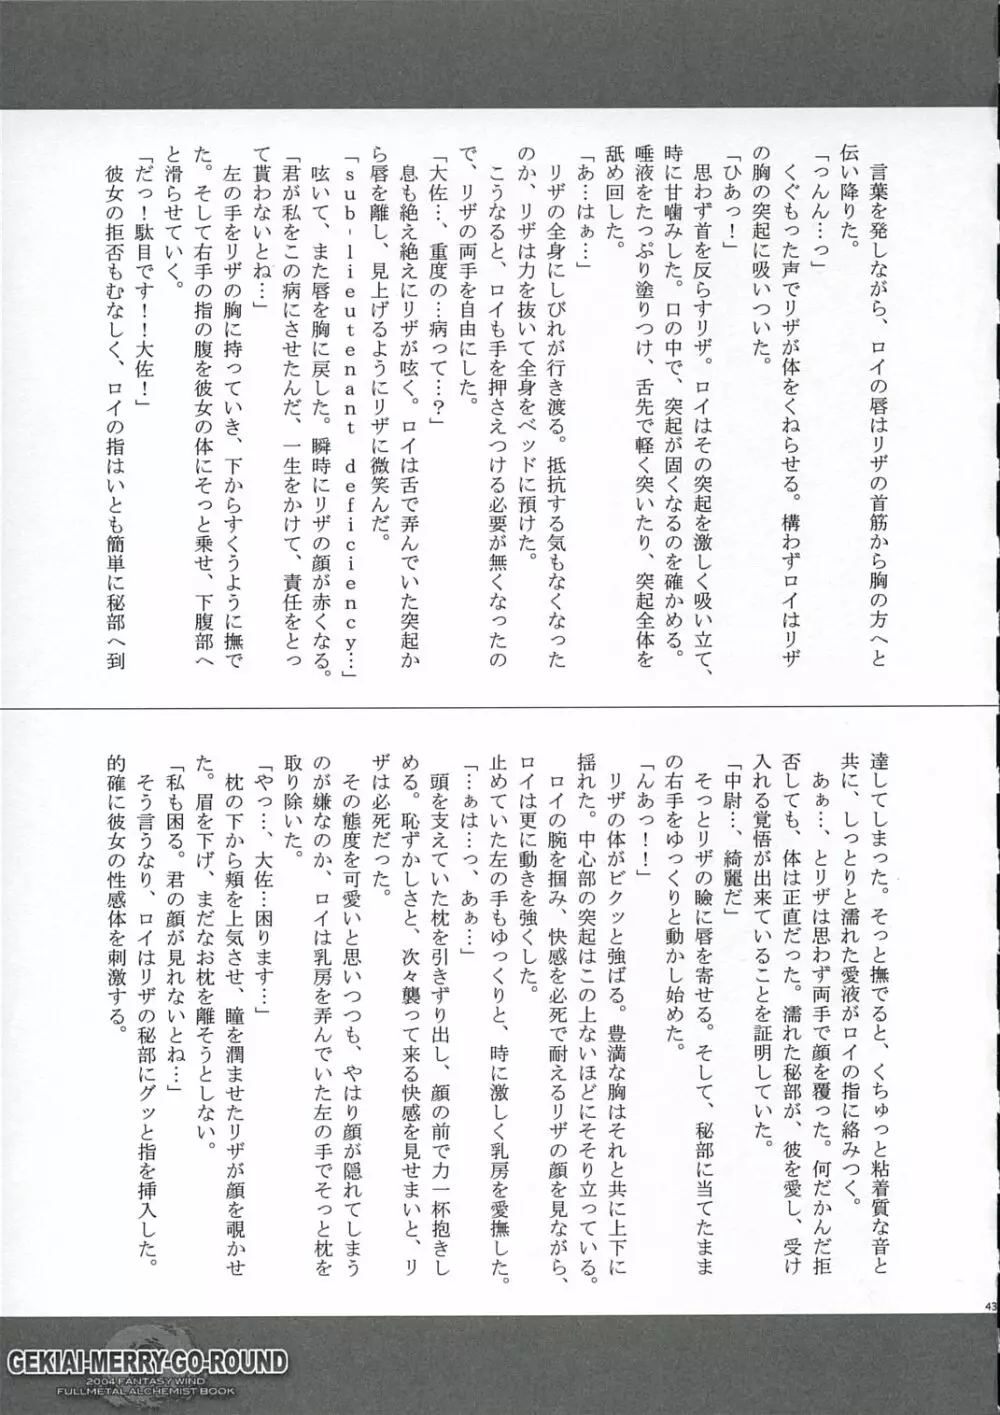 言葉を発しながら、ロイの唇はリザの首筋から胸の方へと
伝い降りた。
「っんん…っ」
くぐもった声でリザが体をくねらせる。構わずロイはリザ
の胸の突起に吸いついた。
「ひあっ！」
思わず首を反らすリザ。ロイはその突起を激しく吸い立て、
時に甘噛みした。口の中で、突起が固くなるのを確かめる。
唾液をたっぷり塗りつけ、舌先で軽く突いたり、突起全体を
舐め回した。
「あ…はぁ…」
リザの全身にしびれが行き渡る。抵抗する気もなくなった
のか、リザは力を抜いて全身をベッドに預けた。
こうなると、ロイも手を押さえつける必要が無くなったの
で、リザの両手を自由にした。
「大佐…、重度の…病って…？」
息も絶え絶えにリザが呟く。ロイは舌で弄んでいた突起か
ら唇を離し、見上げるようにリザに微笑んだ。
「ｓｕｂ‐ｌｉｅｕｔｅｎａｎｔ ｄｅｆｆｉｃｉｅｎｃｙ…」
呟いて、また唇を胸に戻した。瞬時にリザの顔が赤くなる。
「君が私をこの病にさせたんだ、一生をかけて、責任をとっ
て貰わないとね…」
左の手をリザの胸に持っていき、下からすくうように撫で
た。そして右手の指の腹を彼女の体にそっと乗せ、下腹部へ
と滑らせていく。
「だっ！駄目です！！大佐！」
彼女の拒否もむなしく、ロイの指はいとも簡単に秘部へ到
達してしまった。そっと撫でると、くちゅっと粘着質な音と
共に、しっとりと濡れた愛液がロイの指に絡みつく。
あぁ…、とリザは思わず両手で顔を覆った。何だかんだ拒
否しても、体は正直だった。濡れた秘部が、彼を愛し、受け
入れる覚悟が出来ていることを証明していた。
「中尉…、綺麗だ」
そっとリザの瞼に唇を寄せる。そして、秘部に当てたまま
の右手をゆっくりと動かし始めた。
「んあっ！！」
リザの体がビクッと強ばる。豊満な胸はそれと共に上下に
揺れた。中心部の突起はこの上ないほどにそそり立っている。
ロイの腕を掴み、快感を必死で耐えるリザの顔を見ながら、
ロイは更に動きを強くした。
止めていた左の手もゆっくりと、時に激しく乳房を愛撫した。
「…ぁは…っ、あぁ…」
頭を支えていた枕を引きずり出し、顔の前で力一杯抱きし
める。恥ずかしさと、次々襲って来る快感を見せまいと、リ
ザは必死だった。
その態度を可愛いと思いつつも、やはり顔が隠れてしまう
のが嫌なのか、ロイは乳房を弄んでいた左の手でそっと枕を
取り除いた。
「やっ…、大佐…困ります…」
枕の下から頬を上気させ、瞳を潤ませたリザが顔を覗かせ
た。眉を下げ、まだなお枕を離そうとしない。
「私も困る。君の顔が見れないとね…」
そう言うなり、ロイはリザの秘部にグッと指を挿入した。
的確に彼女の性感体を刺激する。
43
GEKIAI-MERRY-GO-ROUND
2004 FANTASY WIND
FULLMETAL ALCHEMIST BOOK